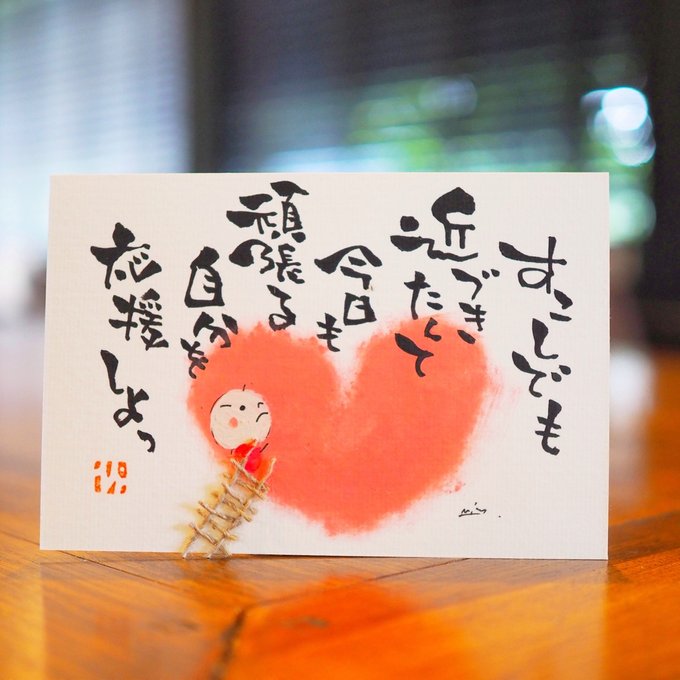 すこしでも
近づき
たくて
今日も
頑張る
自分を
応援しよっ